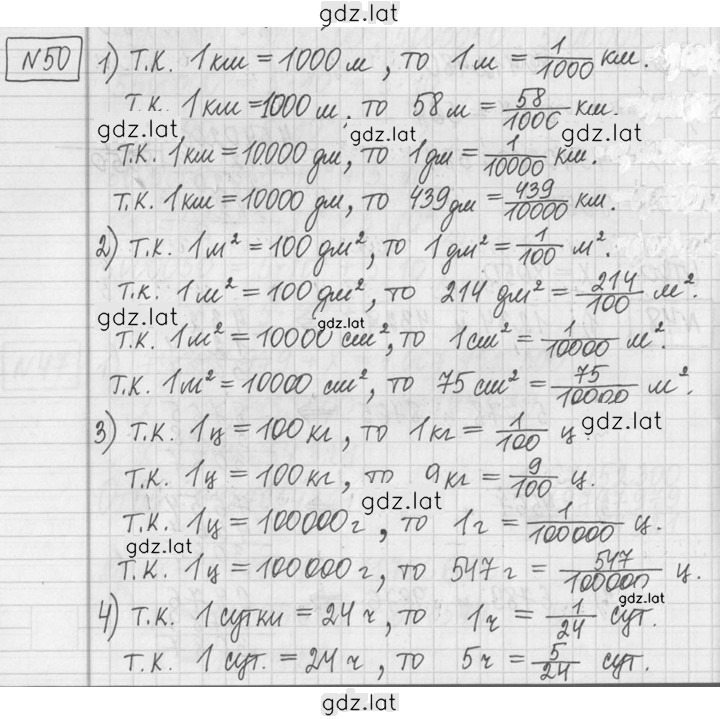 gdz.lat
N50 1) Т.К. 1 км = 1000 м, то 1 м = 1/1000 км.
Т.К. 1 км = 1000 м, то 58 м = 58/1000 км.
gdz.lat gdz.lat gdz.lat
Т.К. 1 км = 10000 дм, то 1 дм = 1/10000 км.
Т.К. 1 км = 10000 дм, то 439 дм = 439/10000 км.
2) Т.К. 1 м² = 100 дм², то 1 дм² = 1/100 м².
Т.К. 1 м² = 100 дм², то 214 дм² = 214/100 м².
gdz.lat gdz.lat
Т.К. 1 м² = 10000 см², то 1 см² = 1/10000 м².
Т.К. 1 м² = 10000 см², то 75 см² = 75/10000 м².
gdz.lat
3) Т.К. 1 ц = 100 кг, то 1 кг = 1/100 ц
Т.К. 1 ц = 100 кг, то 9 кг = 9/100 ц.
gdz.lat
Т.К. 1 ц = 100000 г, то 1 г = 1/100000 ц.
gdz.lat
Т.К. 1 ц = 100000 г, то 547 г = 547/100000 ц.
gdz.lat
4) Т.К. 1 сутки = 24 ч, то 1 ч = 1/24 сут.
Т.К. 1 сут. = 24 ч, то 5 ч = 5/24 сут.
gdz.lat